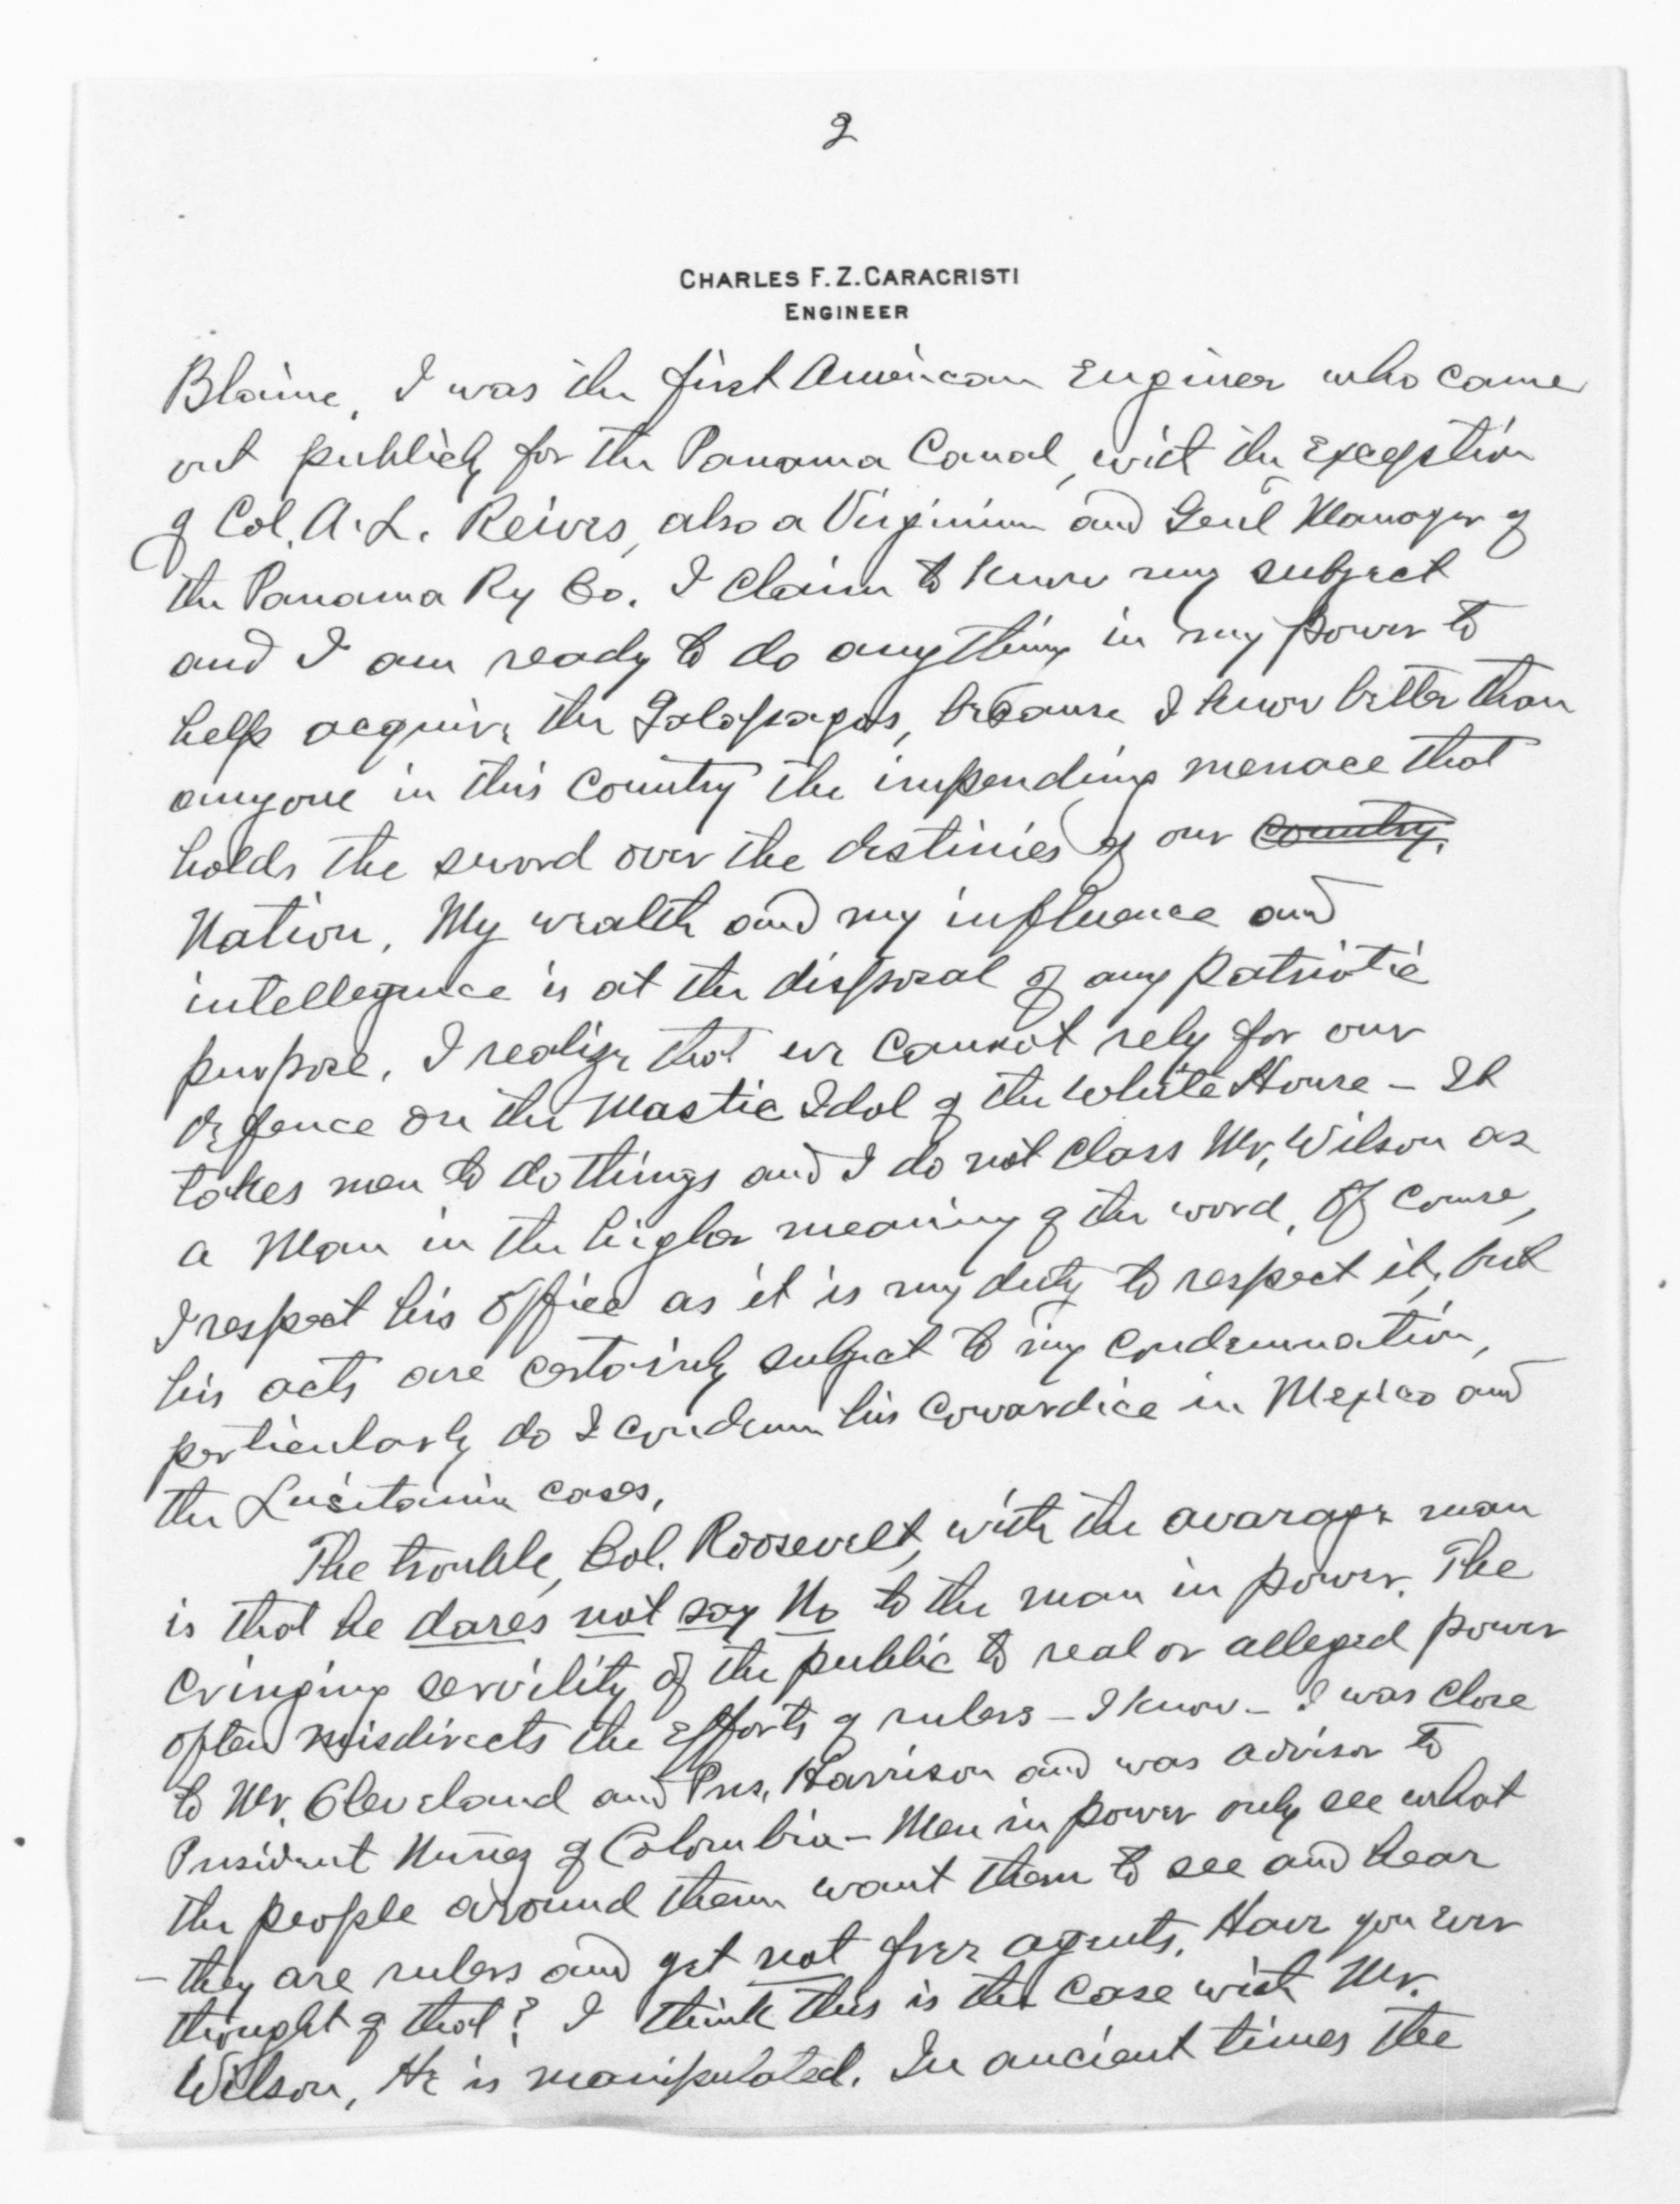 2
CHARLES F. Z. CARACRISTI
ENGINEER
Blaine. I was the first American Engineer who came
out publicly for the Panama Canal, with the Exception
of Col. A. L. Reives, also a Virginian and Genl Manager of
the Panama Ry Co. I claim to know my subject
and I am ready to do anything in my power to
help acquire the Galapagos, because I know better than
anyone in this Country the impending menace that
holds the sword over the destinies of our country.
Nation. My wealth and my influence and
intellegence is at the disposal of any patriotic
purpose. I realize that we cannot rely for our
defence on the Mastic Idol of the White House – It
takes men to do things and I do not class Mr. Wilson as
a Man in the higher meaning of the word. Of course,
I respect his office as it is my duty to respect it, but
his acts are certainly subject to my condemnation,
perticularly do I condemn his cowardice in Mexico and
the Lusitania cases.
The trouble, Col. Roosevelt, with the avarage man
is that he dares not say No to the man in power. The
cringing servility of the public to real or alleged power
often misdirects the Efforts of rulers – I know – I was close
to Mr. Cleveland and Pres. Harrison and was advisor to
President Nuñez of Colombia – Men in power only see what
the people around them want them to see and hear
– they are rulers and yet not free agents. Have you ever
thought of that? I think this is the case with Mr.
Wilson, He is manipulated. In ancient times the